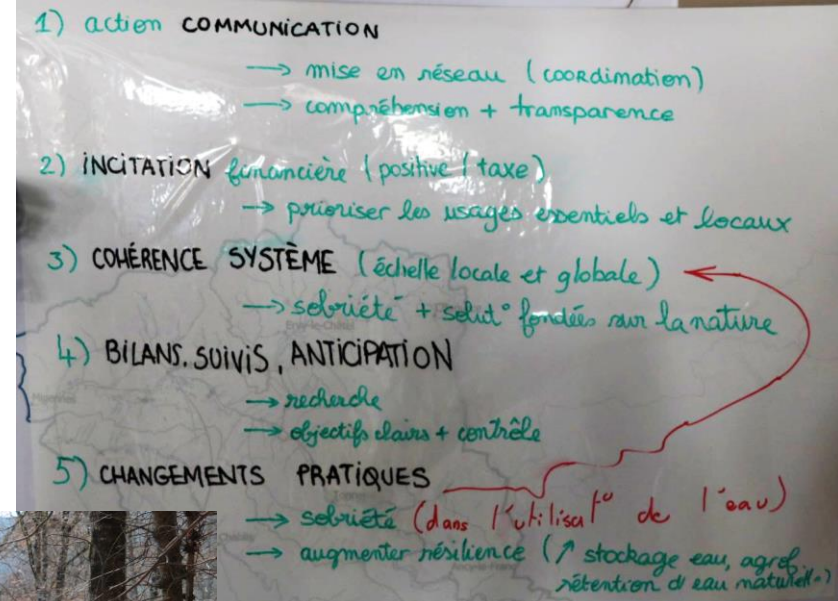 1) action COMMUNICATION
→ mise en réseau (coordination)
→ compréhension + transparence
2) INCITATION financière (positive / taxe)
→ prioriser les usages essentiels et locaux
3) COHÉRENCE SYSTÈME (échelle locale et globale)
→ sobriété + solut° fondées sur la nature
4) BILANS, SUIVIS, ANTICIPATION
→ recherche
→ objectifs clairs + contrôle
5) CHANGEMENTS PRATIQUES
→ sobriété (dans l'utilisat° de l'eau)
→ augmenter résilience (↗ stockage eau, agrof,
rétention d'eau naturelle..)